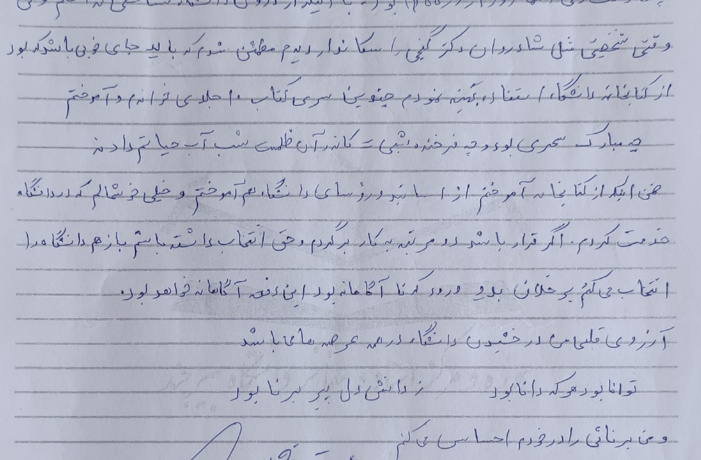 وقتی شخصیتی مثل شادروان دکتر گنجی را سکاندار دیدم مطمئن شدم که باید جای خوبی باشد که بود
از کتابخانه دانشگاه استفاده بهینه نمودم چندین سری کتاب جلدی خواندم و آموختم
چه مبارک سحری بود و چه فرخنده شبی کاندر آن ظلمت شب آب حیاتم دادند
ضمن اینکه از کتابخانه آموختم از اساتید و رؤسای دانشگاه هم آموختم و خیلی خوشحالم که در دانشگاه
خدمت کردم. اگر قرار باشد دو مرتبه به کار برگردم و حق انتخاب داشته باشم باز هم دانشگاه را
انتخاب می کنم برخلاف بدو ورود که نا آگاهانه بود این دفعه آگاهانه خواهد بود.
آرزوی قلبی من درخشیدن دانشگاه در همه عرصه های باشد
توانا بود هر که دانا بود ز دانش دل پیر برنا بود
و من برنائی را در خودم احساس می کنم